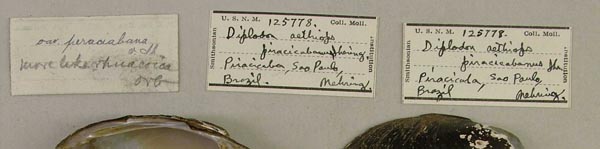 var. piracicabana
more like rhuacoica
orb
U. S. N. M. 125778. Coll. Moll.
Smithsonian
Institution
Diplodon aethiops
piracicabanus Ihering,
Piracicaba, Sao Paulo,
Brazil. Nehring.
U. S. N. M. 125778. Coll. Moll.
Smithsonian
Institution
Diplodon aethiops
piracicabanus Ihg
Piracicaba, Sao Paulo,
Brazil Nehring.